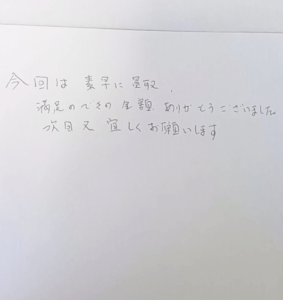 今回は 素子に 買取、
満足のできる 金額 ありがとうございました
次回又 宜しくお願いします